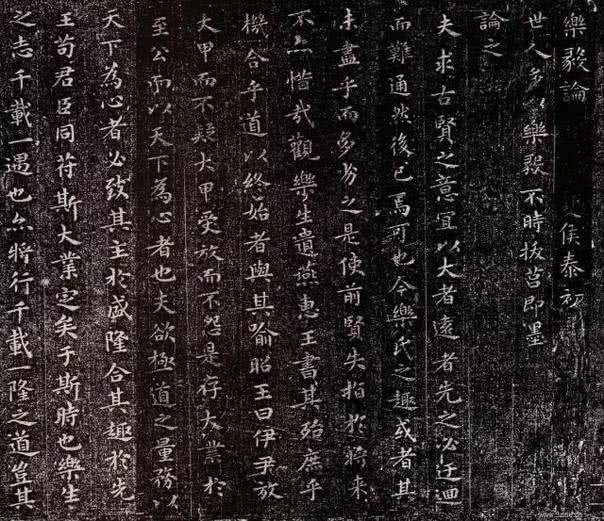 樂毅論 夏侯泰初
世人多以樂毅不時拔莒即墨
論之
夫求古賢之意宜以大者遠者先之必迂迴
而難通然後已焉可也今樂氏之趣或者其
未盡乎而多劣之是使前賢失指於將來
不亦惜哉觀樂生遺燕惠王書其殆庶乎
機合乎道以終始者與其喻昭王曰伊尹放
大甲而不疑大甲受放而不怨是存大業於
至公而以天下為心者也夫欲極道之量務以
天下為心者必致其主於盛隆合其趣於先
王苟君臣同符斯大業定矣于斯時也樂生
之志千載一遇也亦將行千載一隆之道豈其